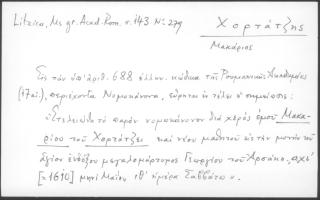 Litzica, Ms gr. Acad. Rom. σ. 143. No 279
Χορτάτζης
Μακάριος
Εἰς τὸν ὑπ' ἀριθ. 688 ἑλλην. κώδικα τῆς Ρουμανικῆς Ἀκαδημίας
(17 αἰ.), περιέχοντα Νομοκάνονα, εὕρηται ἐν τέλει ἡ σημείωσις:
«Ἐτελειώθη τὸ παρὸν νομοκάνονον διὰ χειρὸς ἐμοῦ Μακα-
ρίου τοῦ Χορτάτζει καὶ νέου μαθητοῦ εἰς τὴν μονὴν τοῦ
ἁγίου ἐνδόξου μεγαλομάρτυρος Γεωργίου τοῦ Ἀρσάκη, αχι'
[=1610] μηνὶ Μαΐου ιθ' ἡμέρᾳ Σαββάτω».